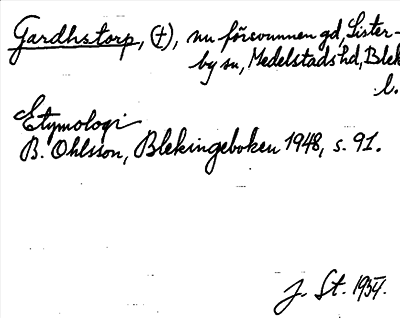 Gardhstorp, (†), nu försvunnen gd, Lister-
by sn, Medelstads hd, Blek
l.
Etymologi
B. Ohlsson, Blekingeboken 1948, s. 91.
J. St. 1954.